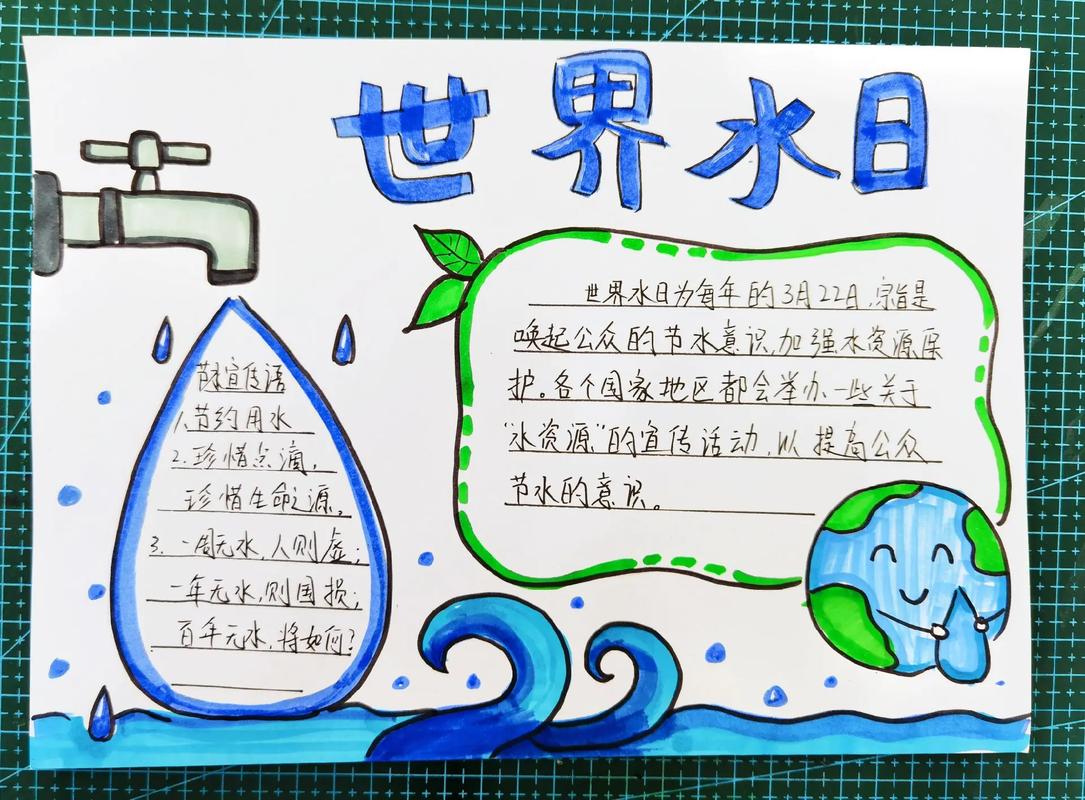 世界水日
世界水日为每年的3月22日,宗旨是
唤起公众的节水意识,加强水资源保
护。各个国家地区都会举办一些关于
“水资源”的宣传活动,以提高公众
节水的意识。
节水宣传语
1.节约用水
2.珍惜点滴,
珍惜生命之源。
3.一周无水,人则虚;
一年无水,则国损;
百年无水,将如何?